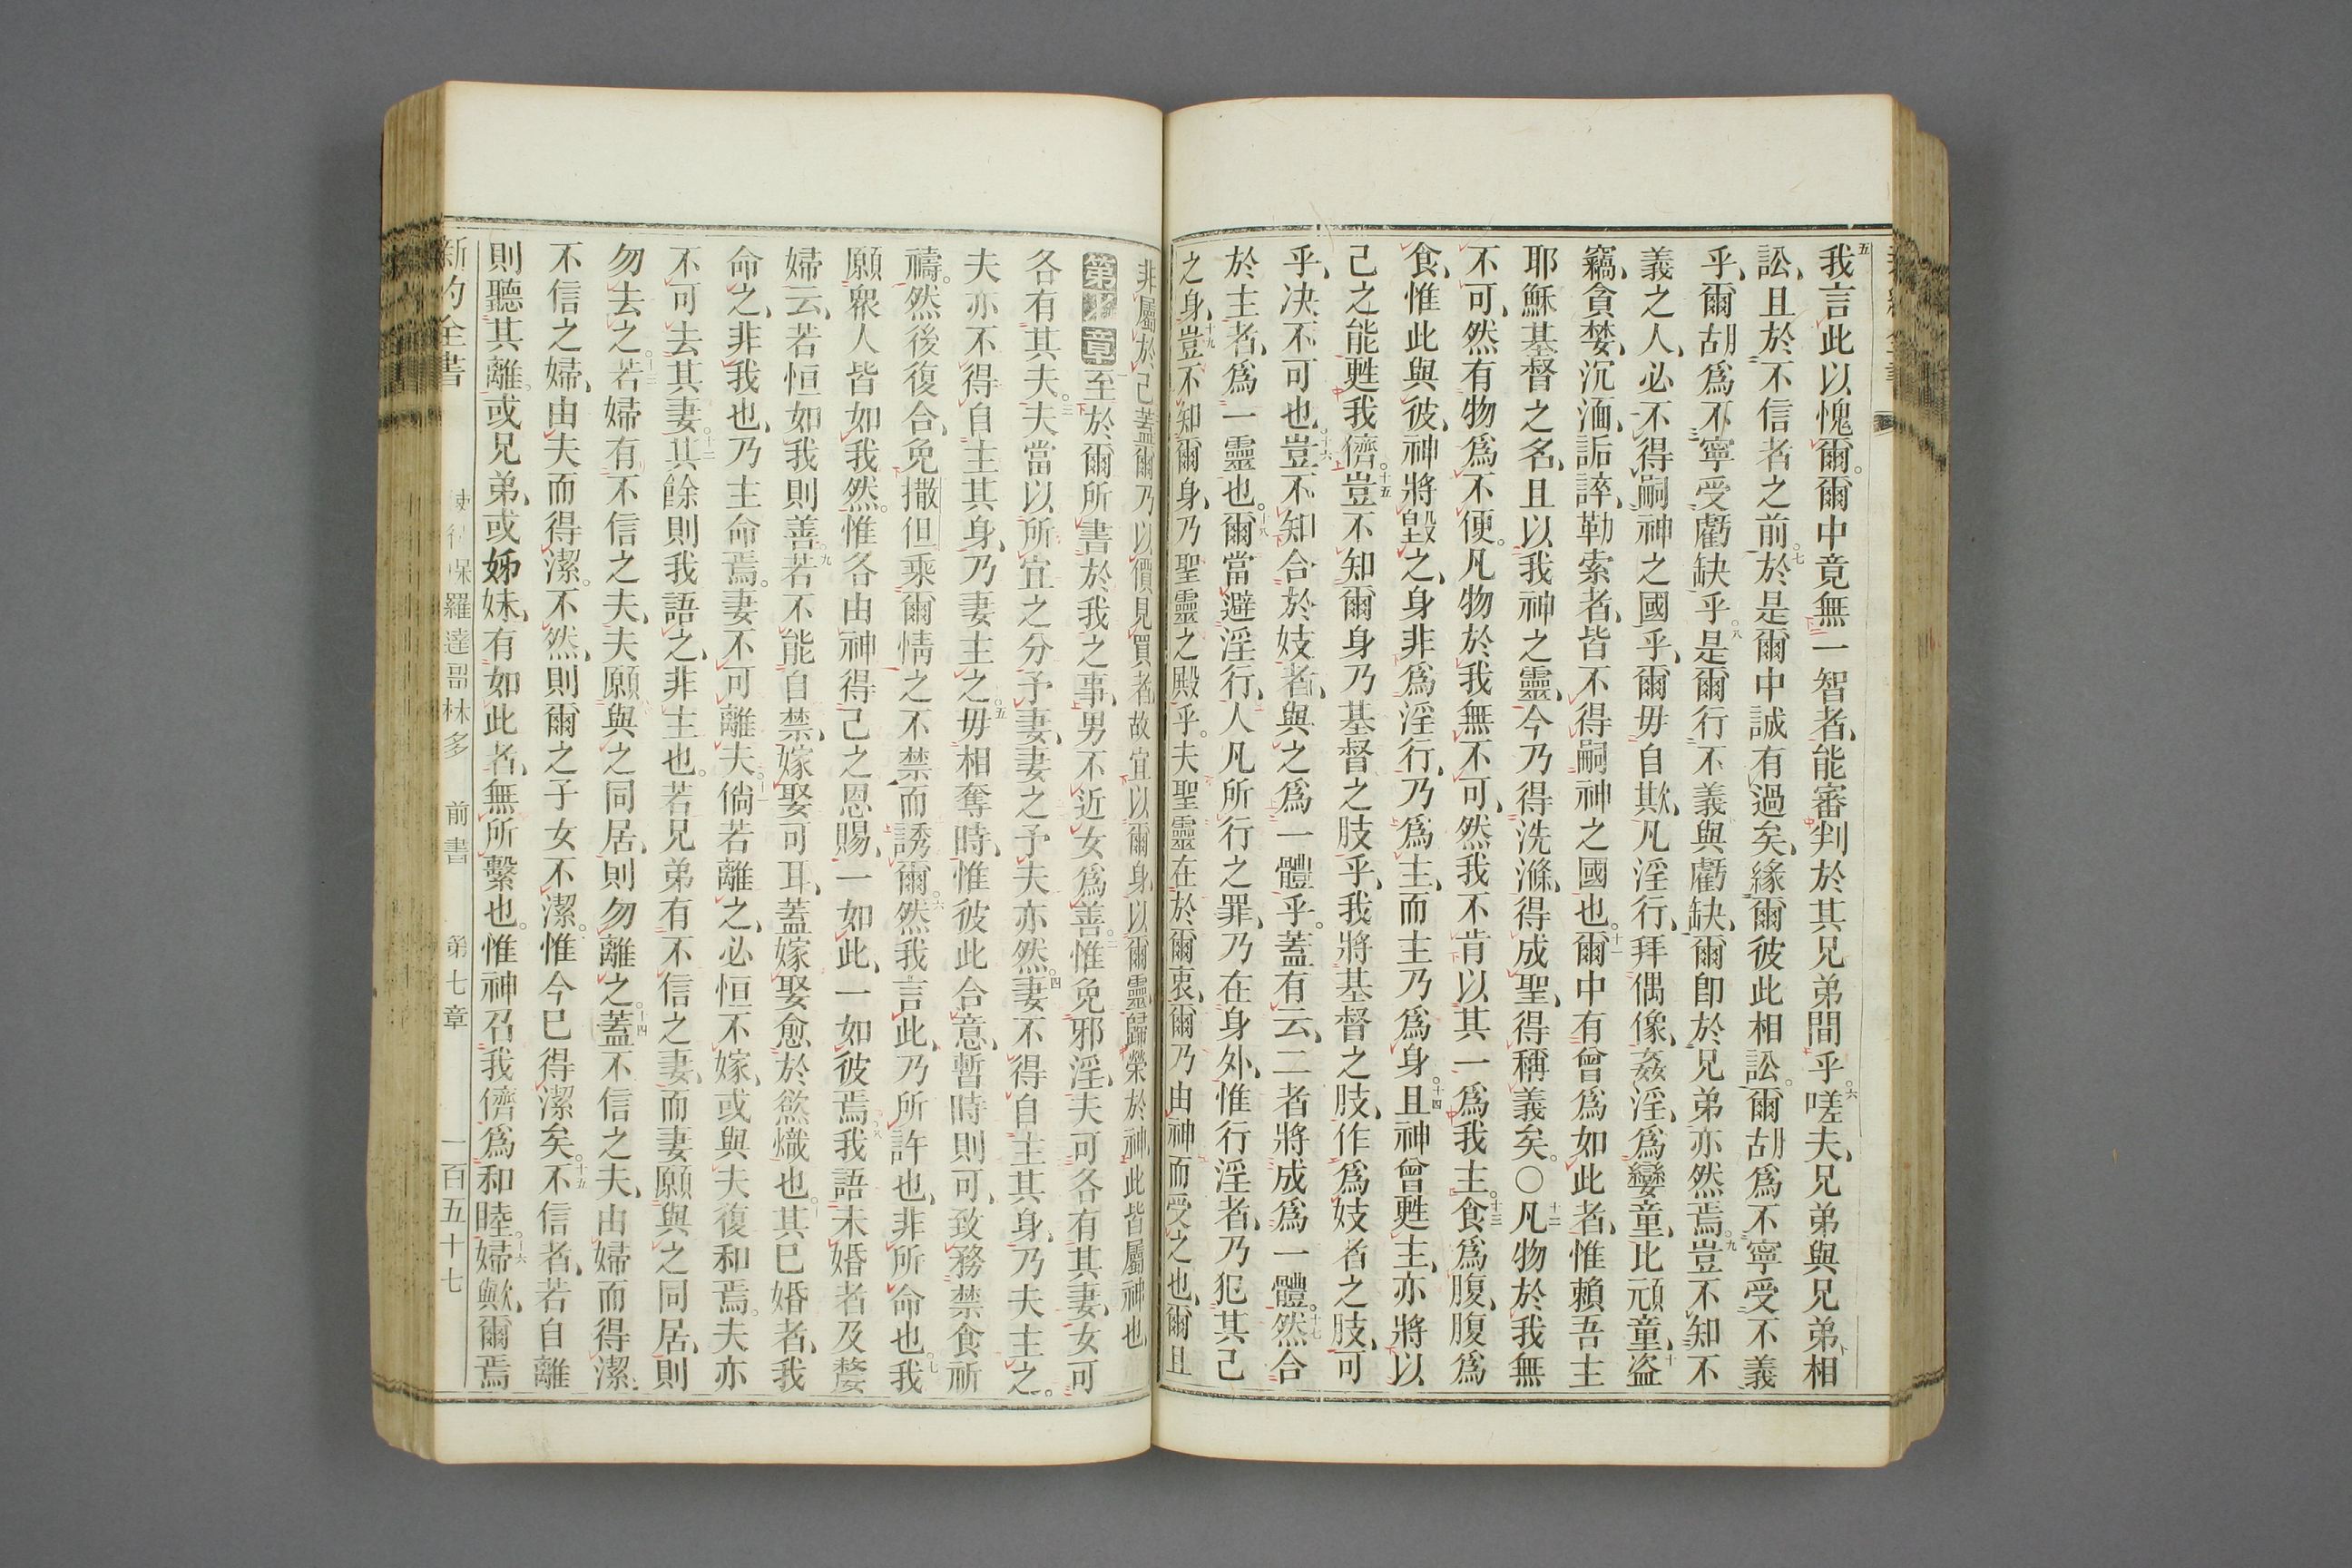 我言此以愧爾。爾中竟無一智者、能審判於其兄弟間乎。嗟夫、兄弟與兄弟相
訟、且於不信者之前。於是爾中誠有過矣、緣爾彼此相訟。爾胡爲不寧受不義
乎、爾胡爲不寧受虧缺乎。是爾行不義與虧缺、爾即於兄弟亦然焉。豈不知不
義之人、必不得嗣神之國乎、爾毋自欺、凡淫行、拜偶像、姦淫、爲孌童、比頑童、盜
竊、貪婪、沉湎、詬誶、勒索者、皆不得嗣神之國也。爾中有曾爲如此者、惟賴吾主
耶穌基督之名、且以我神之靈、今乃得洗滌、得成聖、得稱義矣。○凡物於我無
不可、然有物爲不便。凡物於我無不可、然我不肯以其一爲我主。食爲腹、腹爲
食、惟此與彼、神將毀之、身非爲淫行、乃爲主、而主乃爲身。且神曾甦主、亦將以
己之能甦我儕。豈不知爾身乃基督之肢乎、我將基督之肢、作爲妓者之肢、可
乎、决不可也。豈不知合於妓者、與之爲一體乎。蓋有云、二者將成爲一體。然合
於主者、爲一靈也。爾當避淫行、人凡所行之罪、乃在身外、惟行淫者、乃犯其己
之身、豈不知爾身、乃聖靈之殿乎。夫聖靈在於爾衷、爾乃由神而受之也、爾且
非屬於己、蓋爾乃以價見買者、故宜以爾身以爾靈歸榮於神、此皆屬神也
第七章至於爾所書於我之事、男不近女爲善。惟免邪淫、夫可各有其妻、女可
各有其夫。夫當以所宜之分予妻、妻之予夫亦然。妻不得自主其身、乃夫主之。
夫亦不得自主其身、乃妻主之。毋相奪時、惟彼此合意、暫時則可、致務禁食祈
禱。然後復合、免撒但乘爾情之不禁而誘爾。然我言此、乃所許也、非所命也。我
願衆人皆如我然。惟各由神得己之恩賜、一如此、一如彼焉。我語未婚者及嫠
婦云、若恒如我則善。若不能自禁、嫁娶可耳、蓋嫁娶愈於慾熾也。其已婚者、我
命之、非我也、乃主命焉。妻不可離夫。倘若離之、必恒不嫁、或與夫復和焉。夫亦
不可去其妻。其餘則我語之、非主也。若兄弟有不信之妻、而妻願與之同居、則
勿去之。若婦有不信之夫、夫願與之同居、則勿離之。蓋不信之夫、由婦而得潔、
不信之婦、由夫而得潔。不然、則爾之子女不潔。惟今已得潔矣。不信者、若自離
則聽其離。或兄弟、或姊妹、有如此者、無所繫也。惟神召我儕爲和睦。婦歟、爾焉
新約全書 使徒保羅達哥林多 前書 第七章 一百五十七